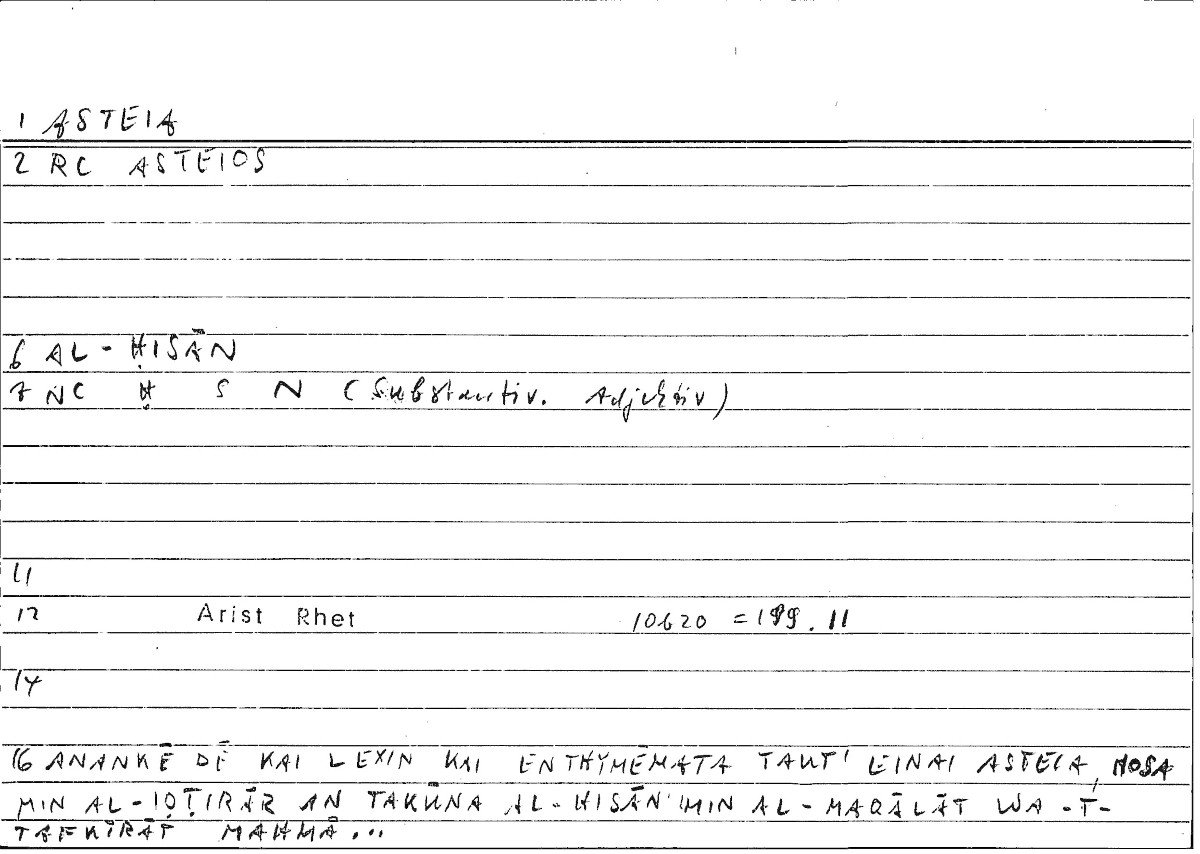 1 ASTEIA
2 RC ASTEIOS
6 AL-ḤISĀN
7 NC Ḥ S N (Substantiv. Adjektiv)
11
12 Arist Rhet 10620 = 199.11
14
16 ANANKĒ DĒ KAI LEXIN KAI ENTHYMĒMATA TAUT' EINAI ASTEIA, HOSA
MIN AL-IḌṬIRĀR AN TAKŪNA AL-ḤISĀN MIN AL-MAQĀLĀT WA-T-
TAFKĪRĀT MAHMĀ...